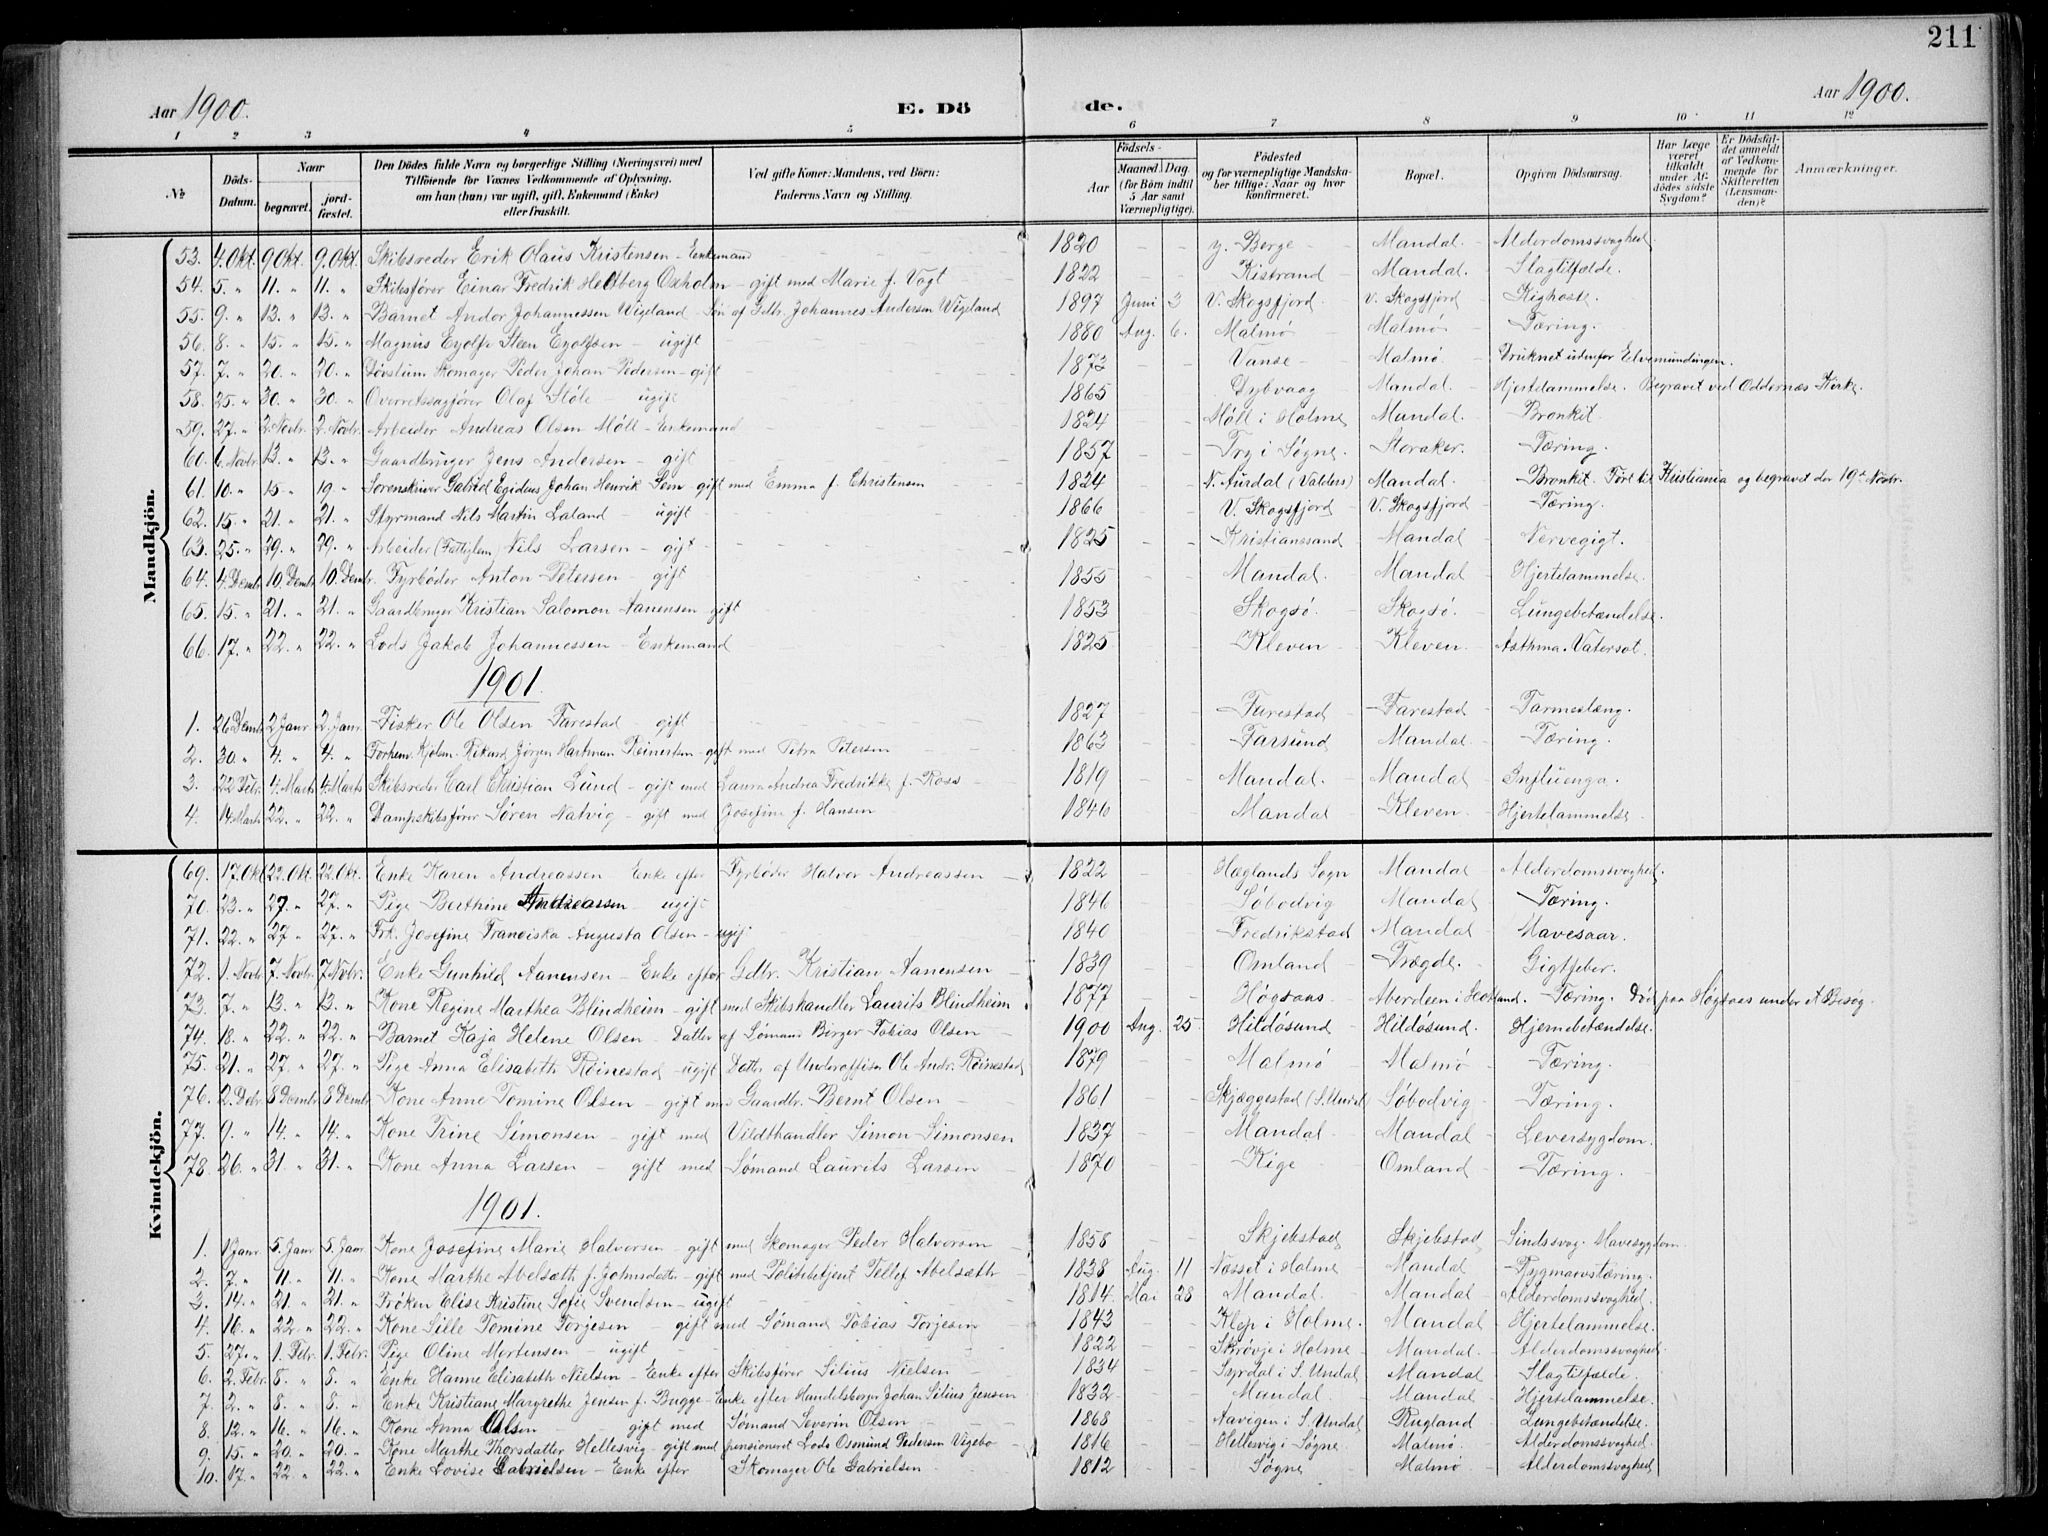 211
Aar 1900. E. Dö de. Aar 1900.
1 2 3 4 5 6 7 8 9 10 11 12
No. Döds-Datum. Naar begravet. jordfæstet. Den Dödes fulde Navn og borgerlige Stilling (Næringsvei) med Tilföiende for Voxnes Vedkommende af Oplysning, om han (hun) var ugift, gift, Enkemand (Enke) eller fraskilt. Ved gifte Koner: Mandens, ved Börn: Faderens Navn og Stilling. Födsels- Aar Maaned Dag. (for Börn indtil 5 Aar samt Værnepligtige). Födested og for værnepligtige Mandskaber tillige: Naar og hvor konfirmeret. Bopæl. Opgiven Dödsaarsag. Har Læge været tilkaldt under Afdödes sidste Sygdom? Er Dödsfaldet anmeldt af Vedkommende for Skifteretten (Lensmanden)? Anmærkninger.
Mandkjön.
53. 4. Okt. 9 Okt. 9. Okt. Skibsreder Erik Olaus Kristensen - Enkemand 1820 - - y. Berge - Mandal. - Alderdomssvaghed.
54. 5. " 11. " 11. " Skibsfører Einar Fredrik Hedberg Oxholm - gift med Marie f. Vogt 1822 - - Kistrand - Mandal. - Slagtilfælde.
55. 9. " 13. " 13. " Barnet Andor Johannessen Wigeland - Søn af Gdbr. Johannes Andersen Wigeland 1897 Juni 3 V. Skogsfjord - V. Skogsfjord - Kighoste.
56. 8. " 15. " 15. " Magnus Eyolf Steen Eyolfsen - ugift 1880 Aug. 6. Malmø - Malmø - Tæring.
57. 7. " 20. " 20. " Skomager Peder Johan Pedersen - gift 1873 - - Vanse - Malmø. - Druknet udenfor Elvemundingen.
58. 25. " 30. " 30. " Overretssagfører Olaf Støle - ugift 1865 - - Dybvaag - Mandal. - Hjertelammelse. Begravet ved Oddernæs Kirke.
59. 27. " 2. Novbr. 2. Novbr. Arbeider Andreas Olsen Møll - Enkemand 1824 - - Møll i Holme - Mandal. - Bronkit.
60. 6. Novbr. 13. " 13. " Gaardbruger Jens Andersen - gift 1857 - - Try i Søgne. - Storaker. - Tæring.
61. 10. " 15. " 19. " Sorenskriver Gabriel Egidius Johan Henrik Sem - gift med Emma f. Christensen 1824 - - N. Aurdal (Valders) - Mandal. - Bronkit. Ført til Kristiania og begravet der 19de Novbr.
62. 15. " 21. " 21. " Styrmand Nils Martin Laland - ugift 1866 - - V. Skogsfjord - V. Skogsfjord - Tæring.
63. 25. " 29. " 29. " Arbeider (Fattiglem) Nils Larsen - gift 1825 - - Kristianssand - Mandal - Nervegigt.
64. 4 Dembr. 10. Dembr. 10. Dembr. Fyrbøder Anton Petersen - gift 1855 - - Mandal. - Mandal - Hjertelammelse.
65. 15. " 21. " 21. " Gaardbruger Kristian Salomon Aanensen - gift 1853 - - Skogsø. - Skogsø. - Lungebetændelse.
66. 17. " 22. " 22. " Lods Jakob Johannessen - Enkemand 1825 - - Kleven - Kleven. - Asthma. Vatersot.
1901.
1. 26 Dembr. 2 Janr. 2. Janr. Fisker Ole Olsen Farestad - gift 1827 - - Farestad - Farestad - Tarmeslæng.
2. 30. " 4. " 4. " Forhenv. Kjøbm. Rikard Jørgen Hartman Reinertsen - gift med Petra Petersen 1863 - - Farsund - Mandal. - Tæring.
3. 22 Febr. 4. Marts 4. Marts Skibsreder Carl Christian Lund - gift med Laura Andrea Fredrikke f. Ross 1819 - - Mandal. - Mandal - Influenza.
4. 14. Marts 22. " 22. " Dampskibsfører Søren Natvig - gift med Josefine f. Hansen 1846 - - Mandal - Kleven. - Hjertelammelse.
Kvindekjön.
69. 17. Okt. 22. Okt. 22. Okt. Enke Karen Andreassen Enke efter Fyrbøder Halvor Andreassen 1822 - - Hæglands Sogn - Mandal - Alderdomssvaghed.
70. 23. " 27. " 27. " Pige Berthine Andreassen - ugift 1846 - - Søbodvig - Mandal - Tæring.
71. 22. " 27 " 27. " Frk. Josefine Franciska Augusta Olsen - ugift 1840 - - Fredrikstad - Mandal - Mavesaar.
72. 1. Novbr. 7. Novbr. 7. Novbr. Enke Gunhild Aanensen - Enke efter Gdbr. Kristian Aanensen 1839 - - Omland - Trægde. - Gigtfeber.
73. 7. " 13. " 13. " Kone Regine Marthea Blindheim - gift med Skibshandler Laurits Blindheim 1877 - - Høgsaas - Aberdeen i Scotland. - Tæring. Død paa Høgsaas under et Besøg.
74. 18. " 22. " 22. " Barnet Kaja Helene Olsen - Datter af Sømand Børger Tobias Olsen 1900 Aug. 25. Hildøsund - Hildøsund. - Hjernebetændelse.
75. 21. " 27. " 27. " Pige Anna Elisabeth Røinestad - ugift Datter af Underoffiser Ole Andr. Røinestad 1879 - - Malmø - Malmø - Tæring.
76. 2. Debr. 8 Dembr. 8 Dembr. Kone Anne Tomine Olsen - gift med Gaardbr. Bernt Olsen 1861 - - Skjæggestad (S. Undal) Søbodvig - Tæring.
77. 9. " 14. " 14. " Kone Trine Simonsen - gift med Vildthandler Simon Simonsen 1837 - - Mandal - Mandal - Leversygdom.
78. 26. " 31. " 31. " Kone Anna Larsen - gift med Sømand Laurits Larsen 1870 - - Kige - Omland - Tæring.
1901.
1. 1 Janr. 5. Janr. 5. Janr. Kone Josefine Marie Halvorsen - gift med Skomager Peder Halvorsen 1858 - - Skjebstad - Skjebstad - Sindssvag. Mavesygdom.
2. 7. " 11. " 11. " Kone Marthe Abelsæth f. Johnsdatter - gift med Politibetjent Tellef Abelsæth 1838 Aug. 11 Næsset i Holme - Mandal - Rygmarvstæring.
3. 14. " 21. " 21. " Frøken Elise Kristine Sofie Svendsen - ugift 1814. Mai 28 Mandal. - Mandal. - Alderdomssvaghed.
4. 16. " 22. " 22. " Kone Sille Tomine Torjesen - gift med Sømand Tobias Torjesen 1843 - - Klep i Holme. - Mandal - Hjertelammelse.
5. 27. " 1. Febr. 1. Febr. Pige Oline Mortensen - ugift 1822 - - Skrøvje i Holme - Mandal. - Alderdomssvaghed.
6. 2. Febr. 8. " 8. " Enke Hanne Elisabeth Nielsen - Enke efter Skibsfører Silius Nielsen 1834 - - Syrdal i S. Undal Mandal - Slagtilfælde.
7. 2. " 8. " 8. " Enke Kristiane Margrethe Jensen f. Bugge - Enke efter Handelsborger Johan Silius Jensen 1832 - - Mandal - Mandal - Hjertelammelse.
8. 12. " 16. " 16. " Kone Anna Olsen gift med Sømand Severin Olsen 1868 - - Aavigen i S. Undal Rugland - Lungebetændelse.
9. 15. " 20. " 20. " Kone Marthe Thorsdatter Hellesvig - gift med pensioneret Lods Osmund Pedersen Vigebo 1816 - - Hellesvig i Søgne. - Malmø. - Alderdomssvaghed
10. 17. " 22. " 22. " Enke Lovise Gabrielsen - Enke efter Skomager Ole Gabrielsen 1812 - - Søgne - Malmø - Alderdomssvaghed